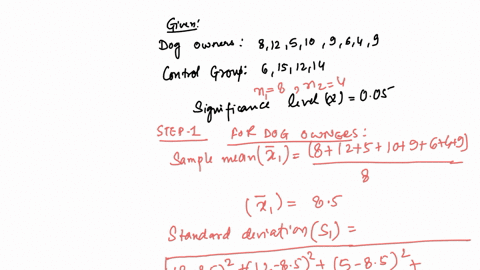 Given:
Dog owners: 8, 12, 5, 10, 9, 6, 4, 9
Control Group: 6, 15, 12, 14
n₁=8, n₂=4
Significance level(α)=0.05
STEP-1 FOR DOG OWNERS:
Sample mean(x̄₁) = (8+12+5+10+9+6+4+9)
8
(x̄₁) = 8.5
Standard deviation(S₁) =
(8-8.5)²+(12-8.5)²+(5-8.5)²+